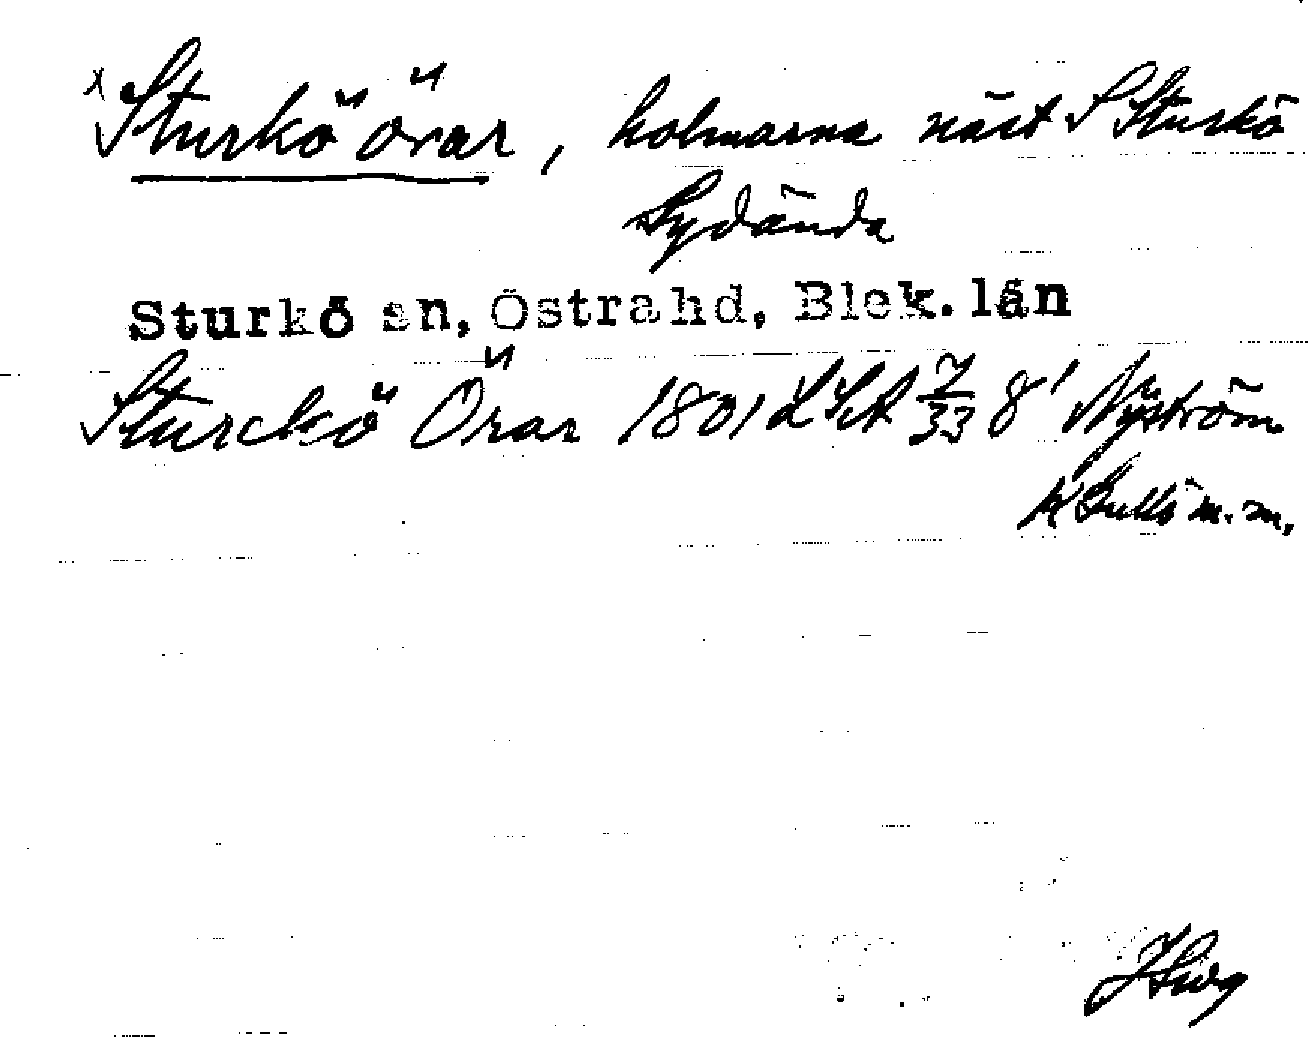 x Sturkö örar, holmarna näst S Sturkö
Sydända
Sturkö sn, Östra hd, Blek. län
Sturckö Örar 1801 LSA 7/33 8' Nyström
m.m.